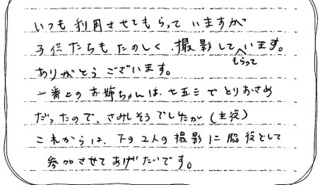 いつも利用させてもらっていますが
子供たちもたのしく撮影してもらっています。
ありがとうございます。
一番上のお姉ちゃんは、七五三でとりおさめ
だったので、さみしそうでしたが(主役)
これからは、下の2人の撮影に脇役として
参加させてあげたいです。